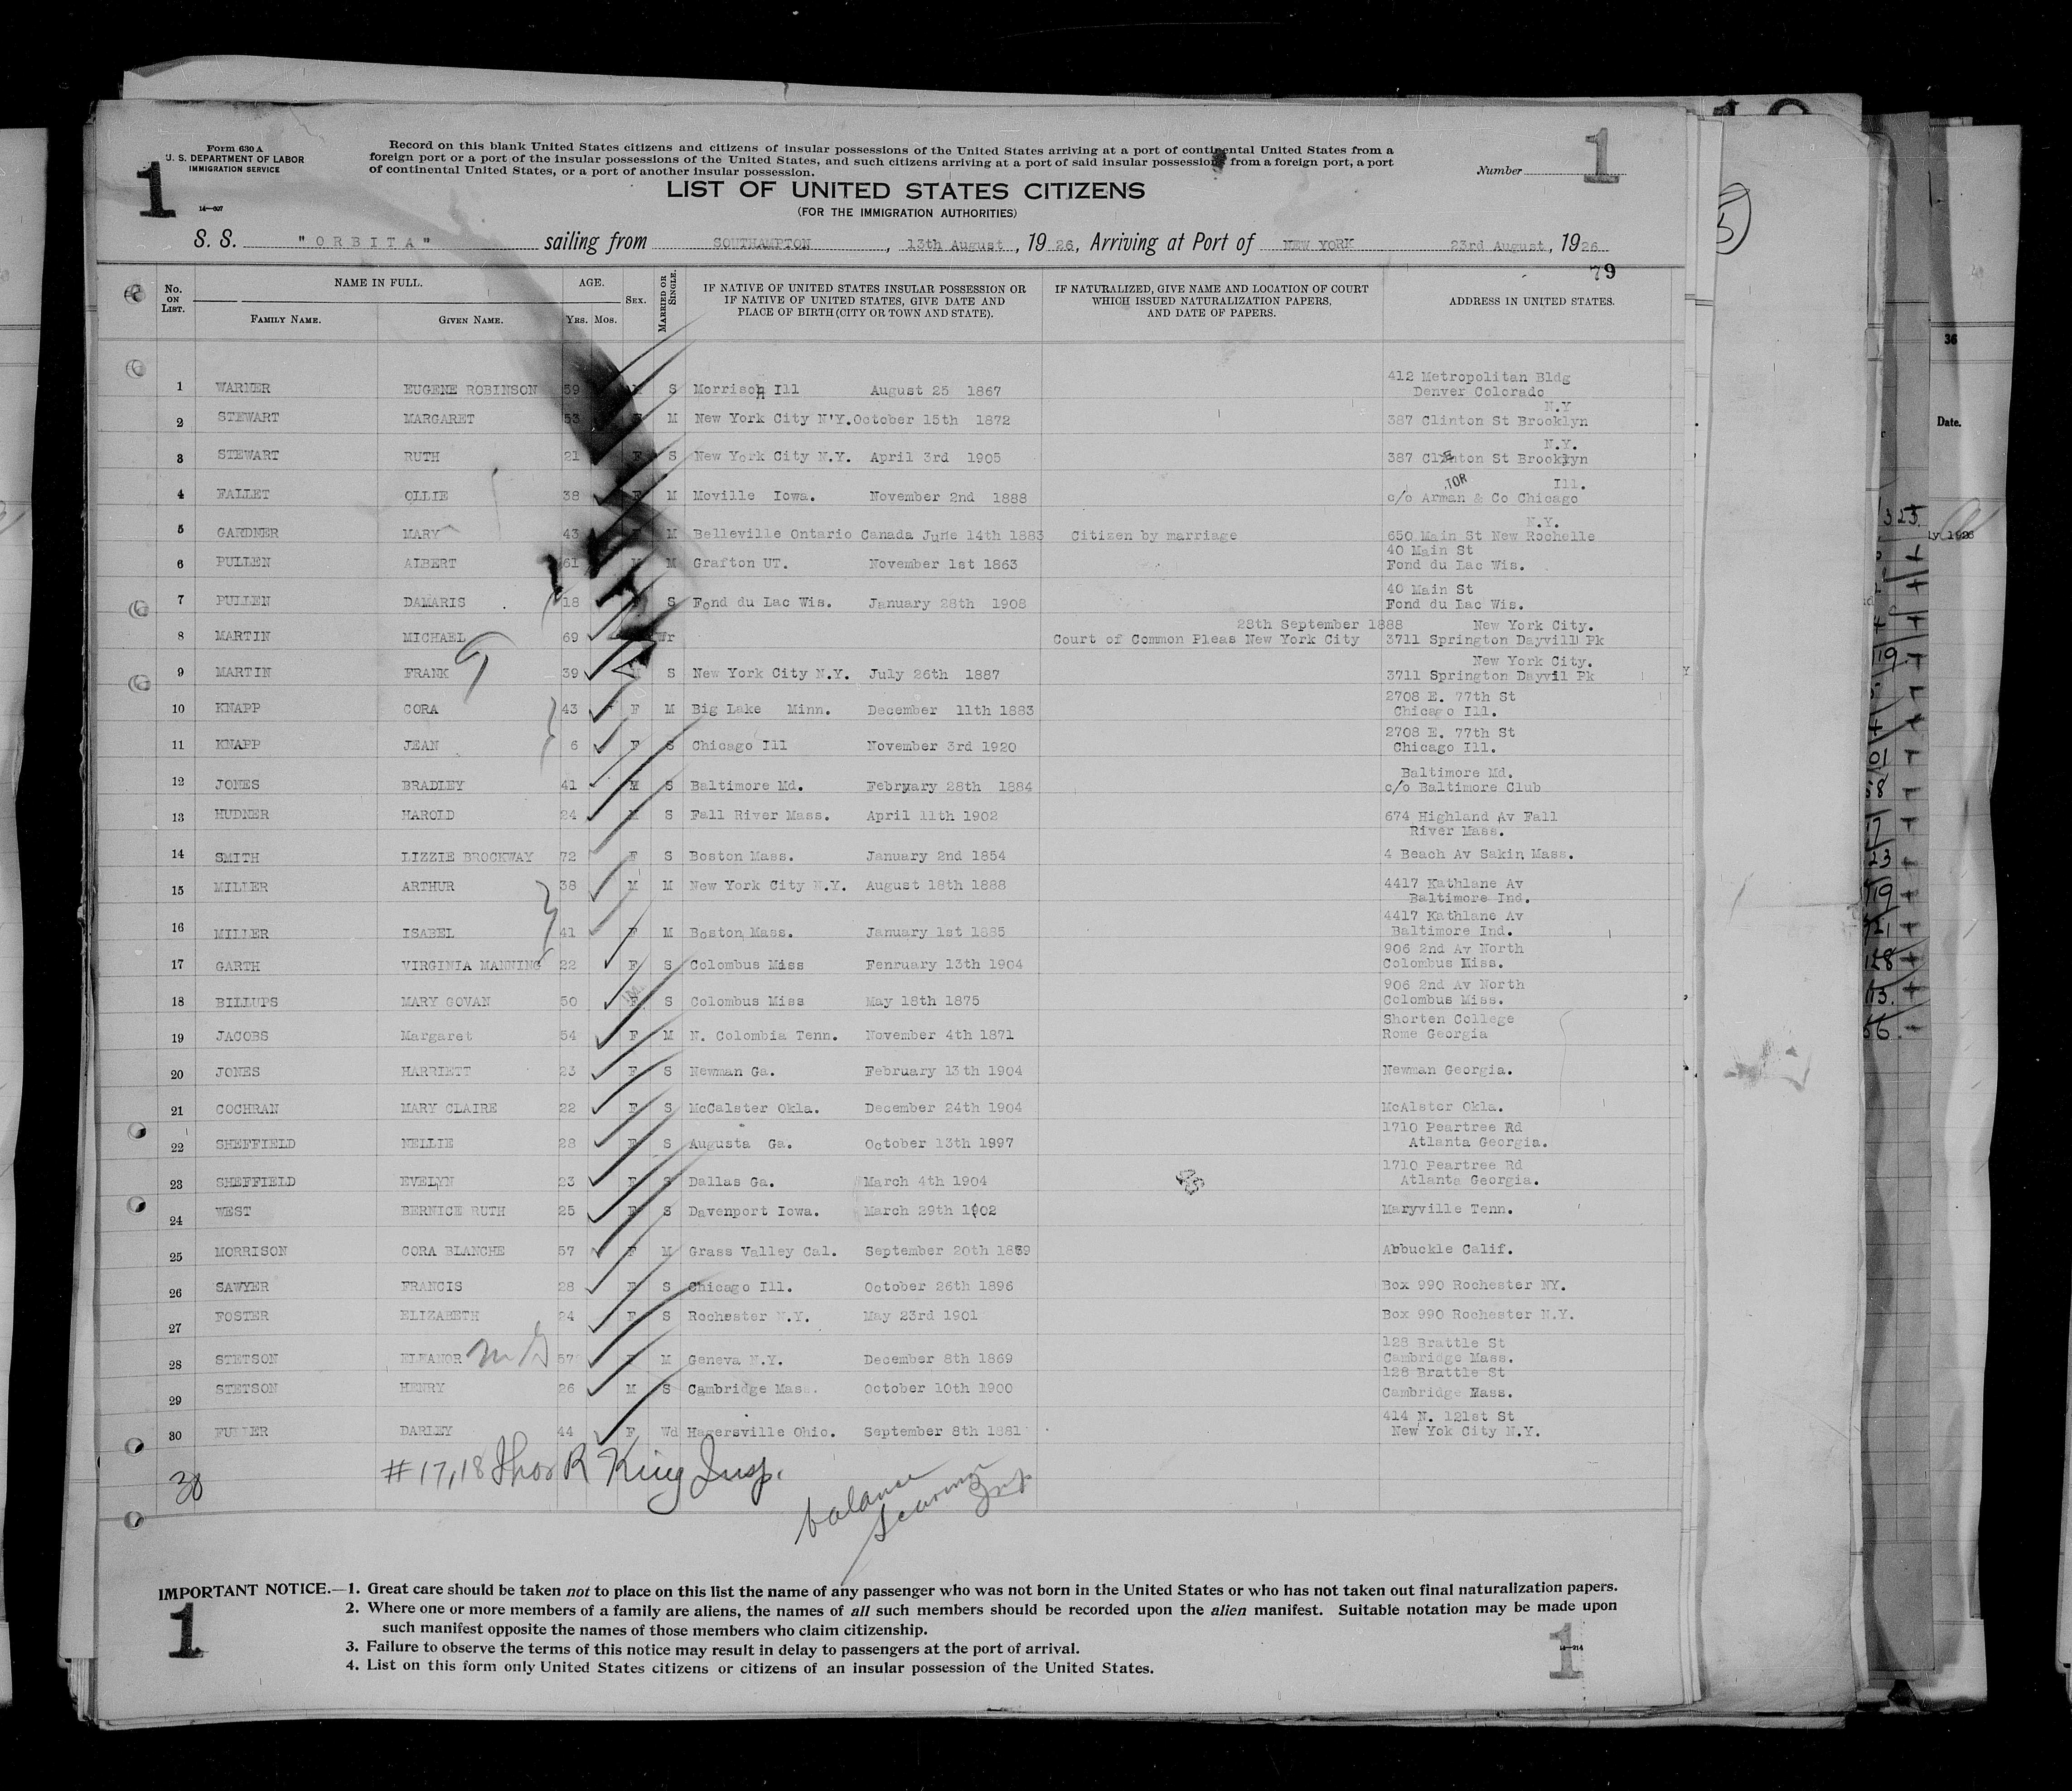 Form 630 A
U. S. DEPARTMENT OF LABOR
IMMIGRATION SERVICE
1
14—607
Record on this blank United States citizens and citizens of insular possessions of the United States arriving at a port of continental United States from a
foreign port or a port of the insular possessions of the United States, and such citizens arriving at a port of said insular possessions from a foreign port, a port
of continental United States, or a port of another insular possession.
Number 1
LIST OF UNITED STATES CITIZENS
(FOR THE IMMIGRATION AUTHORITIES)
S. S. "ORBITA" sailing from SOUTHAMPTON, 13th August, 1926, Arriving at Port of NEW YORK 23rd August, 1926
79
No. ON LIST. NAME IN FULL. AGE. SEX. MARRIED OR SINGLE. IF NATIVE OF UNITED STATES INSULAR POSSESSION OR IF NATIVE OF UNITED STATES, GIVE DATE AND PLACE OF BIRTH (CITY OR TOWN AND STATE). IF NATURALIZED, GIVE NAME AND LOCATION OF COURT WHICH ISSUED NATURALIZATION PAPERS, AND DATE OF PAPERS. ADDRESS IN UNITED STATES.
FAMILY NAME. GIVEN NAME. YRS. MOS.
1 WARNER EUGENE ROBINSON 59 S Morrison Ill August 25 1867 412 Metropolitan Bldg
Denver Colorado
2 STEWART MARGARET 53 M New York City N'Y. October 15th 1872 387 Clinton St Brooklyn N.Y
3 STEWART RUTH 21 F S New York City N.Y. April 3rd 1905 387 Clinton St Brooklyn N.Y.
4 FALLET OLLIE 38 F M Moville Iowa. November 2nd 1888 c/o Arman & Co Chicago Ill.
5 GARDNER MARY 43 M Belleville Ontario Canada June 14th 1883 Citizen by marriage 650 Main St New Rochelle N.Y.
6 PULLEN ALBERT 61 M M Grafton UT. November 1st 1863 40 Main St
Fond du Lac Wis.
7 PULLEN DAMARIS 18 S Fond du Lac Wis. January 28th 1908 40 Main St
Fond du Lac Wis.
8 MARTIN MICHAEL 69 Wr 28th September 1888 New York City.
Court of Common Pleas New York City 3711 Springton Dayvill Pk
9 MARTIN FRANK 39 M S New York City N.Y. July 26th 1887 New York City.
3711 Springton Dayvil Pk
10 KNAPP CORA 43 F M Big Lake Minn. December 11th 1883 2708 E. 77th St
Chicago Ill.
11 KNAPP JEAN 6 F S Chicago Ill November 3rd 1920 2708 E. 77th St
Chicago Ill.
12 JONES BRADLEY 41 M S Baltimore Md. February 28th 1884 Baltimore Md.
c/o Baltimore Club
13 HUDNER HAROLD 24 M S Fall River Mass. April 11th 1902 674 Highland Av Fall
River Mass.
14 SMITH LIZZIE BROCKWAY 72 F S Boston Mass. January 2nd 1854 4 Beach Av Sakin Mass.
15 MILLER ARTHUR 38 M M New York City N.Y. August 18th 1888 4417 Kathlane Av
Baltimore Ind.
16 MILLER ISABEL 41 F M Boston Mass. January 1st 1885 4417 Kathlane Av
Baltimore Ind.
17 GARTH VIRGINIA MANNING 22 F S Colombus Miss Fenruary 13th 1904 906 2nd Av North
Colombus Miss.
18 BILLUPS MARY GOVAN 50 F S Colombus Miss May 18th 1875 906 2nd Av North
Colombus Miss.
19 JACOBS Margaret 54 F M N. Colombia Tenn. November 4th 1871 Shorten College
Rome Georgia
20 JONES HARRIETT 23 F S Newman Ga. February 13th 1904 Newman Georgia.
21 COCHRAN MARY CLAIRE 22 F S McCalster Okla. December 24th 1904 McAlster Okla.
22 SHEFFIELD NELLIE 28 F S Augusta Ga. October 13th 1997 1710 Peartree Rd
Atlanta Georgia.
23 SHEFFIELD EVELYN 23 F S Dallas Ga. March 4th 1904 1710 Peartree Rd
Atlanta Georgia.
24 WEST BERNICE RUTH 25 F S Davenport Iowa. March 29th 1902 Maryville Tenn.
25 MORRISON CORA BLANCHE 57 F M Grass Valley Cal. September 20th 1869 Abbuckle Calif.
26 SAWYER FRANCIS 28 F S Chicago Ill. October 26th 1896 Box 990 Rochester NY.
27 FOSTER ELIZABETH 24 F S Rochester N.Y. May 23rd 1901 Box 990 Rochester N.Y.
28 STETSON ELEANOR 57 F M Geneva N.Y. December 8th 1869 128 Brattle St
Cambridge Mass.
29 STETSON HENRY 26 M S Cambridge Mass. October 10th 1900 128 Brattle St
Cambridge Mass.
30 FULLER DARLEY 44 F Wd Hagersville Ohio. September 8th 1881 414 N. 121st St
New Yok City N.Y.
30 #17,18 Thos R King Insp.
balance
IMPORTANT NOTICE.—1. Great care should be taken not to place on this list the name of any passenger who was not born in the United States or who has not taken out final naturalization papers.
2. Where one or more members of a family are aliens, the names of all such members should be recorded upon the alien manifest. Suitable notation may be made upon
such manifest opposite the names of those members who claim citizenship.
3. Failure to observe the terms of this notice may result in delay to passengers at the port of arrival.
4. List on this form only United States citizens or citizens of an insular possession of the United States.
1
1
14—214
36
Date.